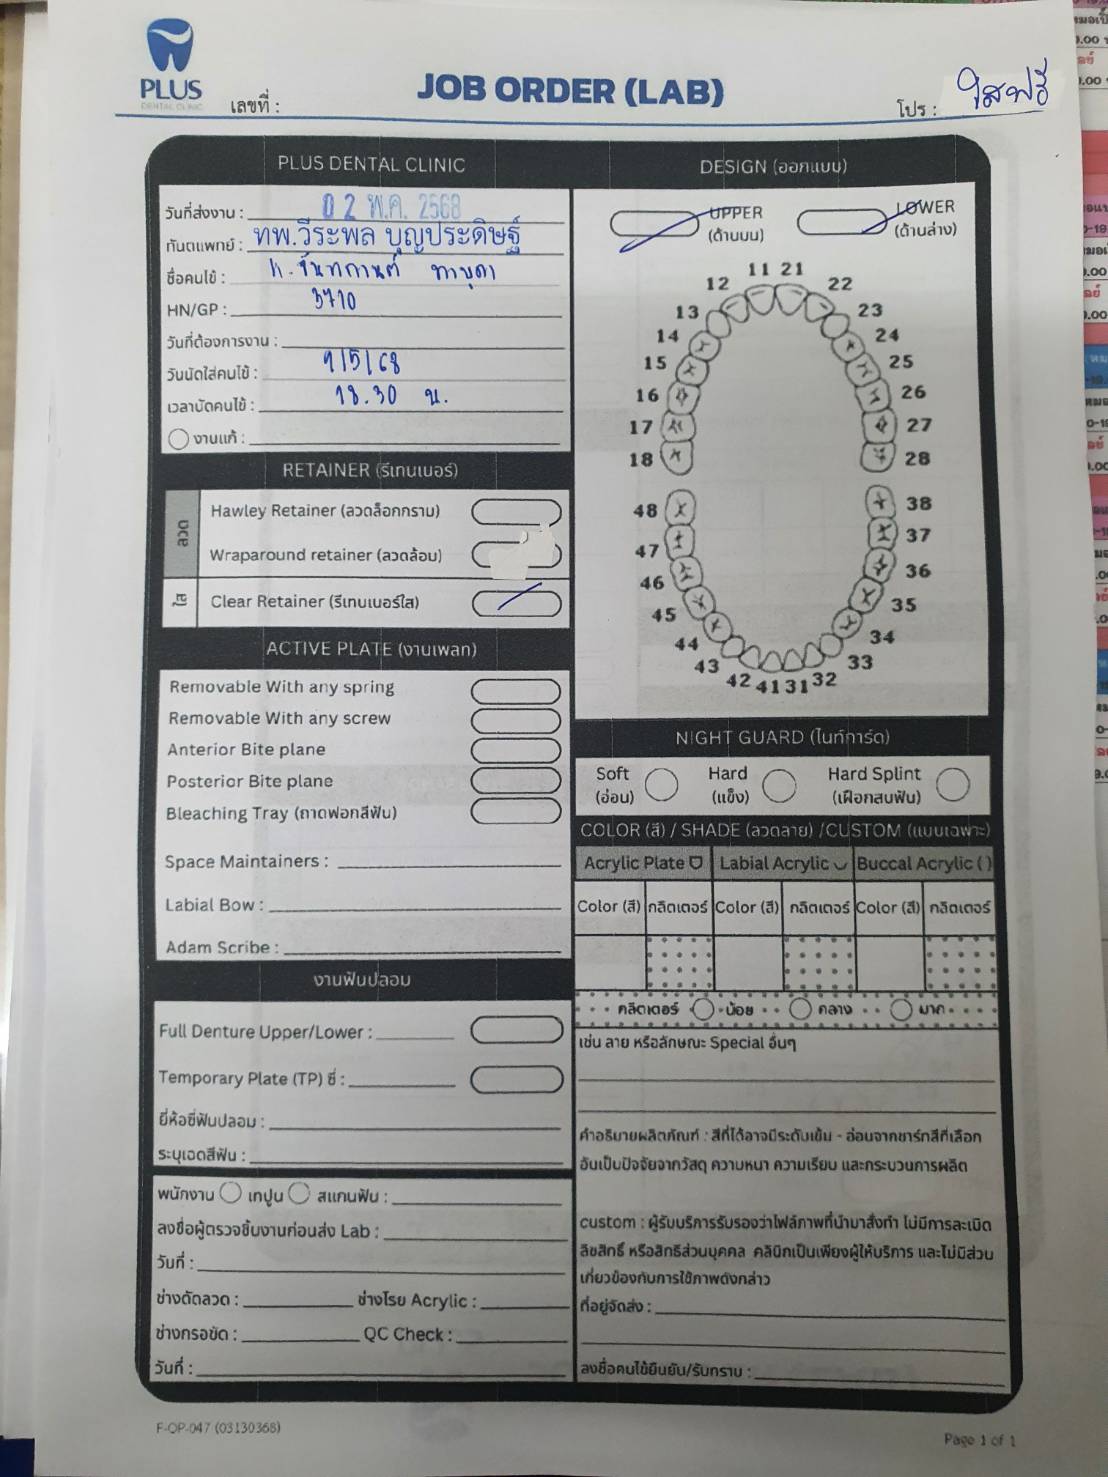 PLUS
DENTAL CLINIC
เลขที่ :
JOB ORDER (LAB)
โปร : ใสฟรี
PLUS DENTAL CLINIC
วันที่ส่งงาน : 02 พ.ค. 2568
ทันตแพทย์ : ทพ.วีระพล บุญประดิษฐ์
ชื่อคนไข้ : น. จันทกานต์ ทาบุดา
HN/GP : 3710
วันที่ต้องการงาน :
วันนัดใส่คนไข้ : 9/5/68
เวลานัดคนไข้ : 18.30 น.
งานแก้ :
RETAINER (รีเทนเนอร์)
ลวด
Hawley Retainer (ลวดล็อกกราม)
Wraparound retainer (ลวดล้อม)
ใส
Clear Retainer (รีเทนเนอร์ใส)
ACTIVE PLATE (งานเพลท)
Removable With any spring
Removable With any screw
Anterior Bite plane
Posterior Bite plane
Bleaching Tray (ถาดฟอกสีฟัน)
Space Maintainers :
Labial Bow :
Adam Scribe :
งานฟันปลอม
Full Denture Upper/Lower :
Temporary Plate (TP) ซี่ :
ยี่ห้อซี่ฟันปลอม :
ระบุเฉดสีฟัน :
พนักงาน เทปูน สแกนฟัน :
ลงชื่อผู้ตรวจชิ้นงานก่อนส่ง Lab :
วันที่ :
ช่างดัดลวด : ช่างโรย Acrylic :
ช่างกรอขัด : QC Check :
วันที่ :
DESIGN (ออกแบบ)
UPPER
(ด้านบน)
LOWER
(ด้านล่าง)
11 21
12 22
13 23
14 24
15 25
16 26
17 27
18 28
48 38
47 37
46 36
45 35
44 34
43 33
42 41 31 32
NIGHT GUARD (ไนท์การ์ด)
Soft Hard Hard Splint
(อ่อน) (แข็ง) (เฝือกสบฟัน)
COLOR (สี) / SHADE (ลวดลาย) /CUSTOM (แบบเฉพาะ)
Acrylic Plate Labial Acrylic Buccal Acrylic ( )
Color (สี) กลิตเตอร์ Color (สี) กลิตเตอร์ Color (สี) กลิตเตอร์
กลิตเตอร์ น้อย กลาง มาก
เช่น ลาย หรือลักษณะ Special อื่นๆ
คำอธิบายผลิตภัณฑ์ : สีที่ได้อาจมีระดับเข้ม - อ่อนจากชาร์ทสีที่เลือก
อันเป็นปัจจัยจากวัสดุ ความหนา ความเรียบ และกระบวนการผลิต
custom : ผู้รับบริการรับรองว่าไฟล์ภาพที่นำมาสั่งทำ ไม่มีการละเมิด
ลิขสิทธิ์ หรือสิทธิส่วนบุคคล คลินิกเป็นเพียงผู้ให้บริการ และไม่มีส่วน
เกี่ยวข้องกับการใช้ภาพดังกล่าว
ที่อยู่จัดส่ง :
ลงชื่อคนไข้ยืนยัน/รับทราบ :
F-OP-047 (03130368)
Page 1 of 1